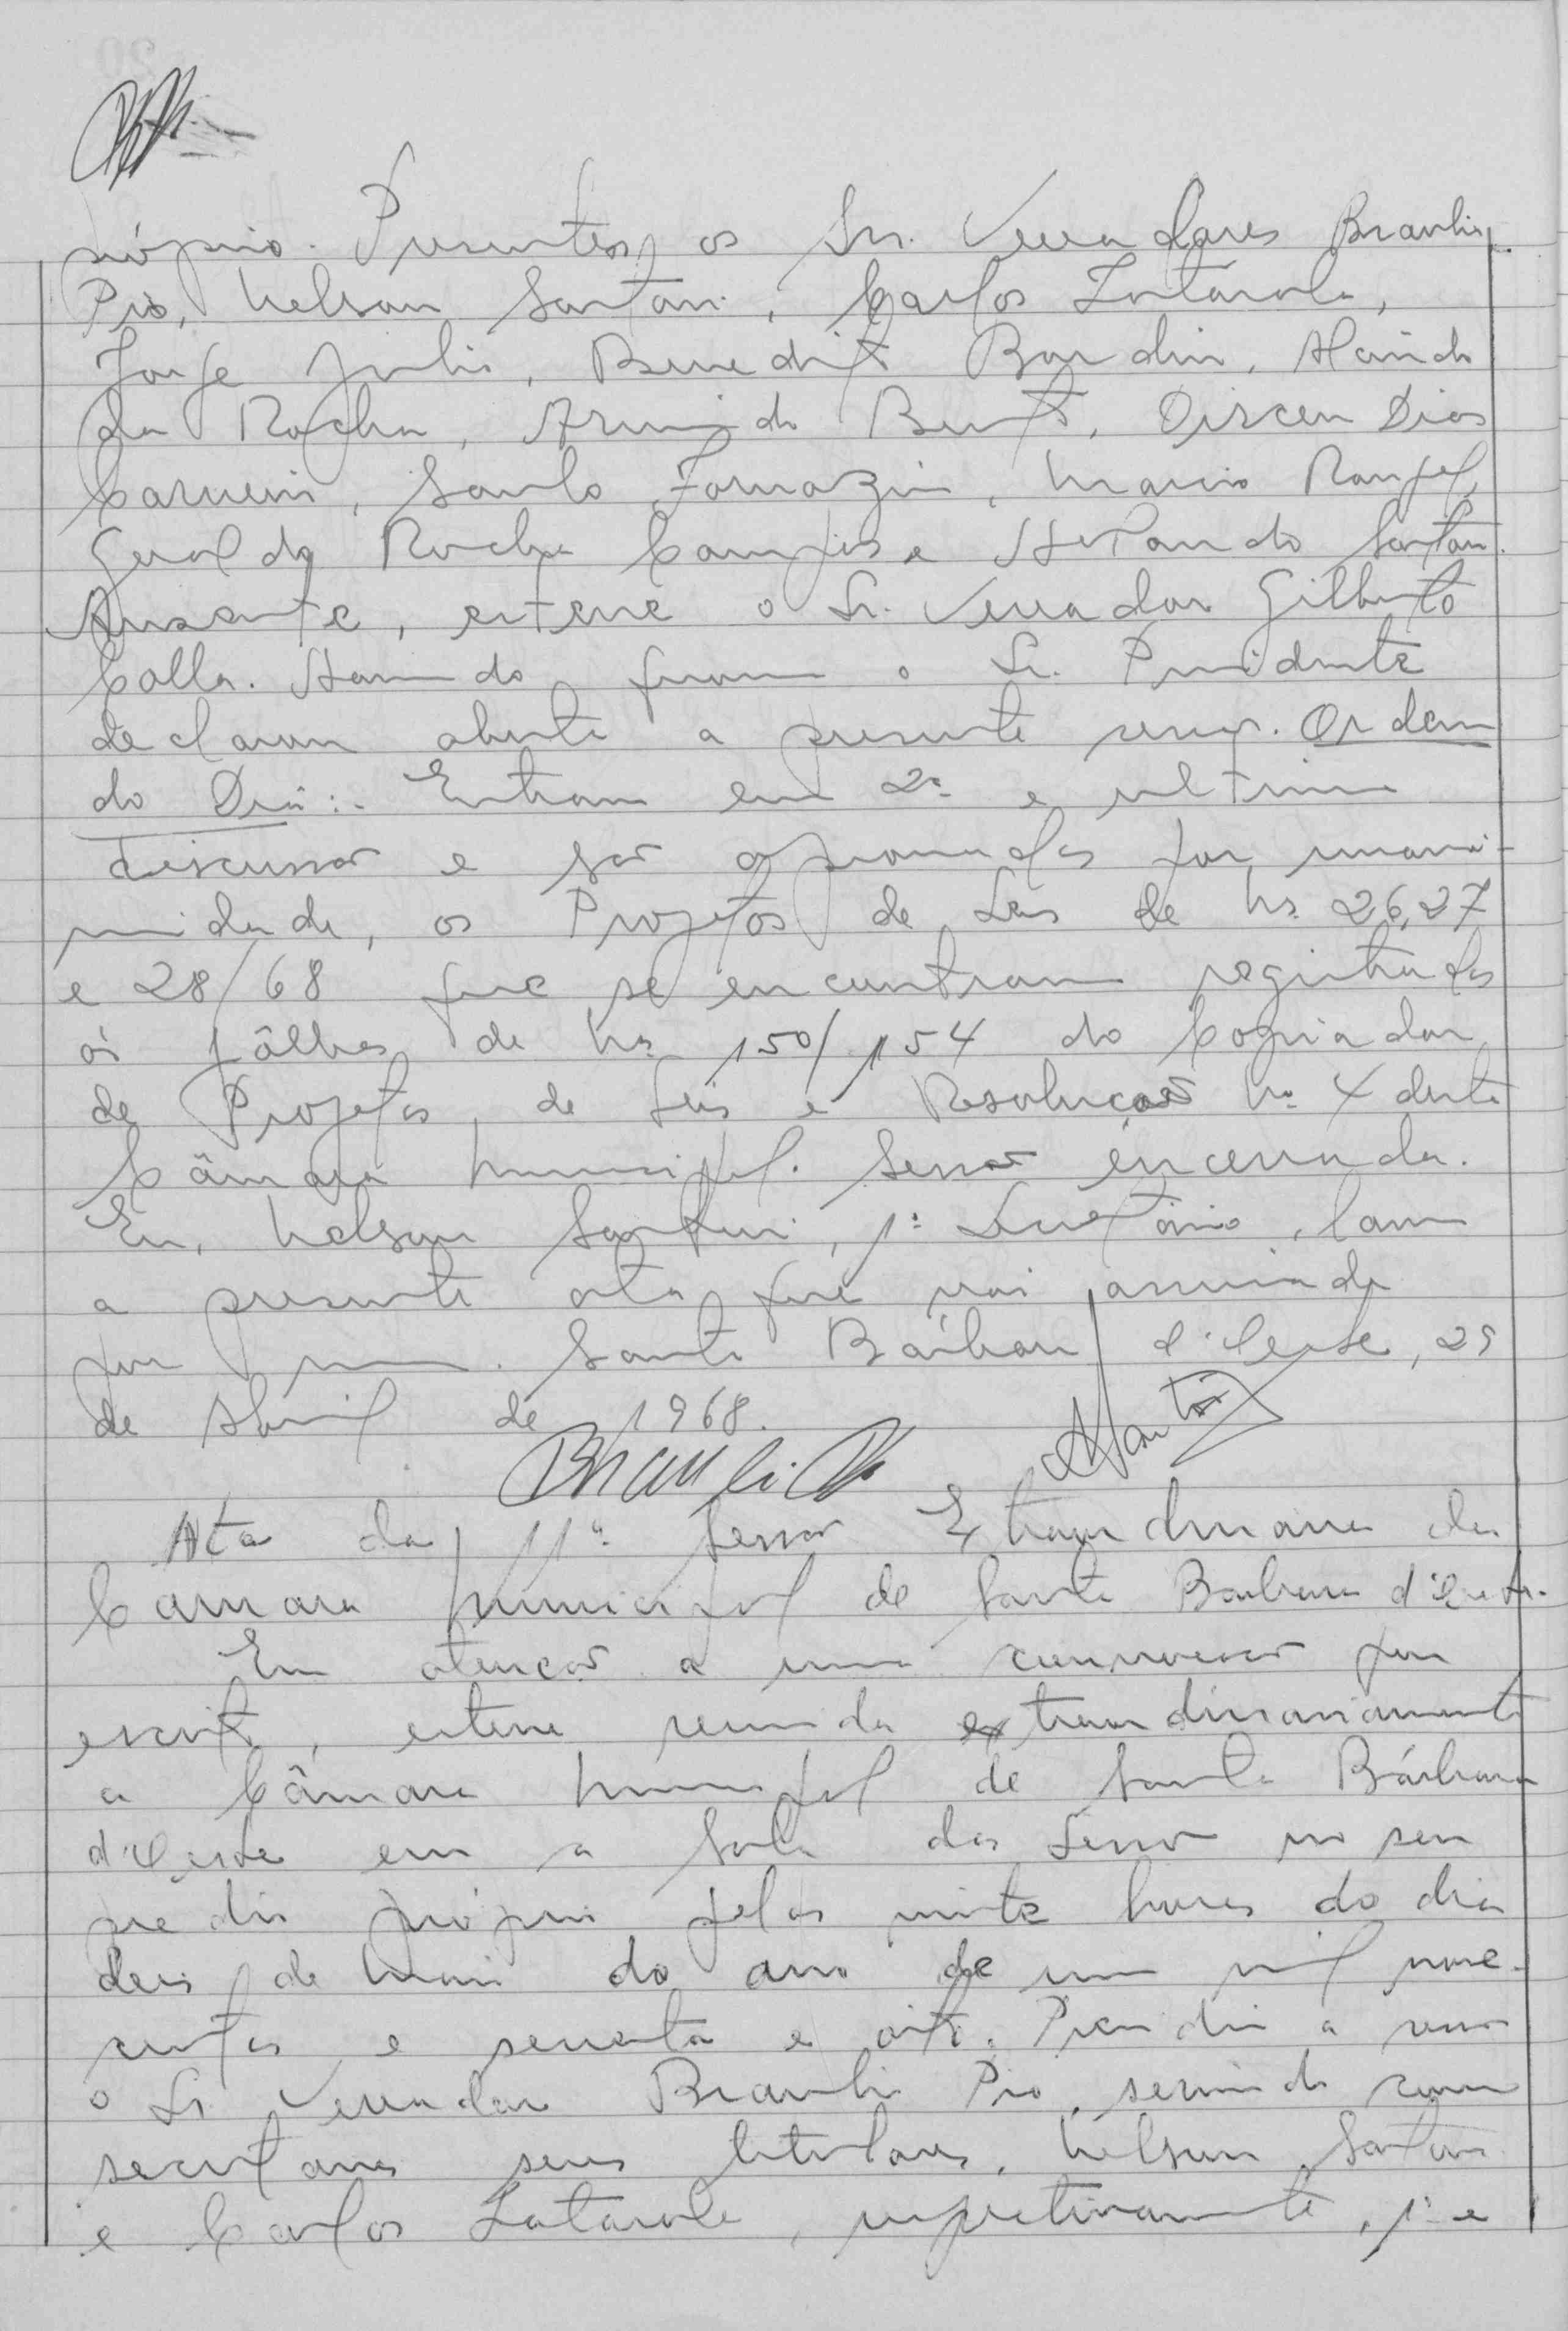 Presentes, os Srs. Vereadores Braulio
Pio, Nelson Santani, Carlos Latarola,
Jorge Julio, Benedito Bardin, Alcindo
da Rocha, Armindo Bento, Dirceu Dias
Carneiro, Saulo Fornazin, Marcio Rangel,
Geraldo Rocha Campos e Santan.
Ausente, esteve o Sr. Vereador Gilberto
Colla. Havendo o Sr. Presidente
declarou aberta a presente sessão. Ordem
do Dia:- Entram em 2ª e ultima
discussão e são aprovados por unani-
midade, os Projetos de Leis de Ns. 26, 27
e 28/68 que se encontram registrados
ás fôlhas de Ns. 150/154 do Copiador
de Projetos, de Leis e Resoluções Nº 4 desta
Câmara Municipal. Sessão encerrada.
Eu, Nelson Santani, 1º Secretário, lavro
a presente ata que vai assinada
por mim. Santa Bárbara d'Oeste, 29
de Abril de 1968.
Braulio Pio
Ata da 11ª Sessão Extraordinaria da
Camara Municipal de Santa Barbara d'Oeste.
Em atenção a uma convocação por
escrito, esteve reunida extraordinariamente
a Câmara Municipal de Santa Bárbara
d'Oeste em a Sala das Sessões no seu
predio próprio pelas vinte horas do dia
de Maio do ano de um mil nove-
centos e sessenta e oito. Presidiu a sessão
o Sr. Vereador Braulio Pio, servindo como
secretarios seus titulares, Nelson Santani
e Carlos Latarola, respectivamente, 1º e